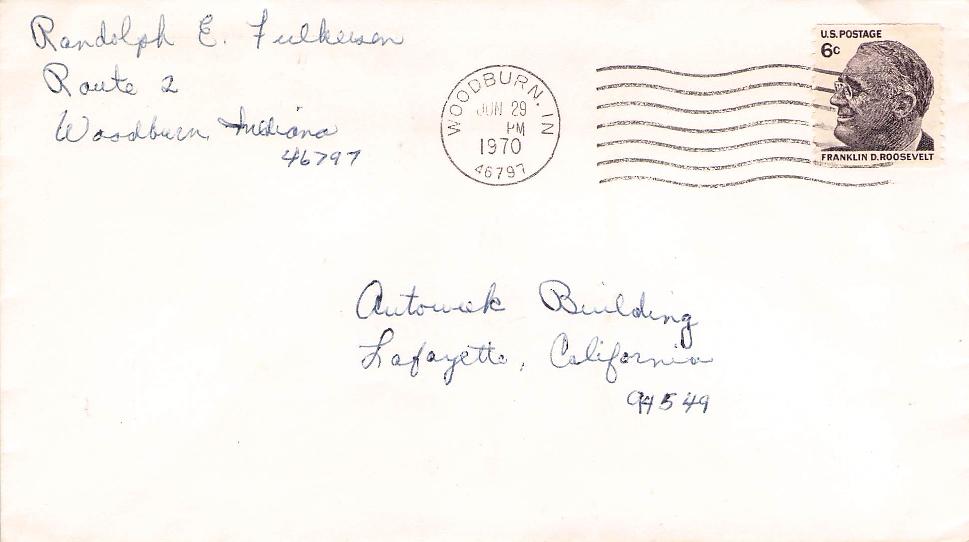 Randolph E. Fulkerson
Route 2
Woodburn, Indiana
46797
WOODBURN, IN
JUN 29
PM
1970
46797
U.S. POSTAGE
6c
FRANKLIN D. ROOSEVELT
Autoweek Building
Lafayette, California
94549